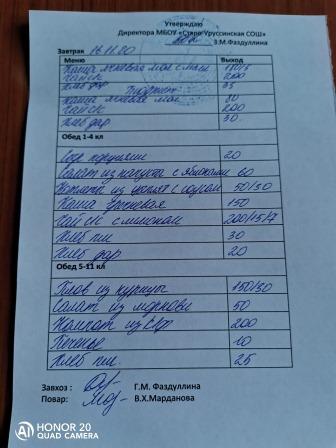 Утверждаю
Директора МБОУ «Старо-Уруссинская СОШ»
З.М.Фаздуллина
Завтрак 16.11.20
Меню Выход
Каша
Чай 200
Хлеб дар 35
Бюджет
Каша 80
200
Хлеб дар 30
Обед 1-4 кл
Сыр порциями 20
Салат из капусты с яблоками 60
Котлета из с соусом 50/30
Каша гречневая 150
Чай с/к с лимоном 200/15/7
Хлеб пш 30
Хлеб дар 20
Обед 5-11 кл
Плов из курицы 150/30
Салат из моркови 50
Компот из с/ф 200
Печенье 10
Хлеб пш. 25
Завхоз : Г.М. Фаздуллина
Повар: В.Х.Марданова
HONOR 20
QUAD CAMERA